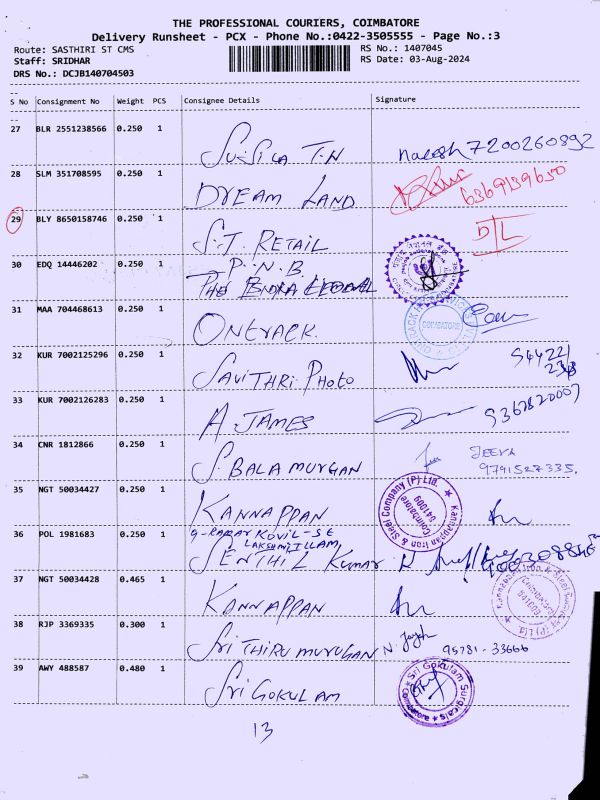 THE PROFESSIONAL COURIERS, COIMBATORE
Delivery Runsheet - PCX - Phone No.:0422-3505555 - Page No.:3
Route: SASTHIRI ST CMS RS No.: 1407045
Staff: SRIDHAR RS Date: 03-Aug-2024
DRS No.: DCJB140704503
S No Consignment No Weight PCS Consignee Details Signature
27 BLR 2551238566 0.250 1
SUSILA T.N naresh 7200260892
28 SLM 351708595 0.250 1
DREAM LAND 6369139650
29 BLY 8650158746 0.250 1
S.T. RETAIL D/L
30 EDQ 14446202 0.250 1
P.N.B
THE
31 MAA 704468613 0.250 1
ONTRACK. COIMBATORE
32 KUR 7002125296 0.250 1
SAVITHRI PHOTO 94422/
33 KUR 7002126283 0.250 1
A JAMES 9367820007
34 CNR 1812866 0.250 1
S. BALA MURUGAN JEEVA
9791527335.
35 NGT 50034427 0.250 1
KANNAPPAN Kannappan Iron & Steel Company (P) Ltd. Coimbatore 641009
36 POL 1981683 0.250 1
KOVIL - ST
LAKSHMI ILLAM,
SENTHIL Kumar. R
37 NGT 50034428 0.465 1
KANNAPPAN Kannappan Iron & Steel Company (P) Ltd. Coimbatore 641009
38 RJP 3369335 0.300 1
Sri THIRU MURUGAN N. 95781-33666
39 AWY 488587 0.480 1
Sri GOKULAM Sri Gokulam Surgicals Coimbatore
13